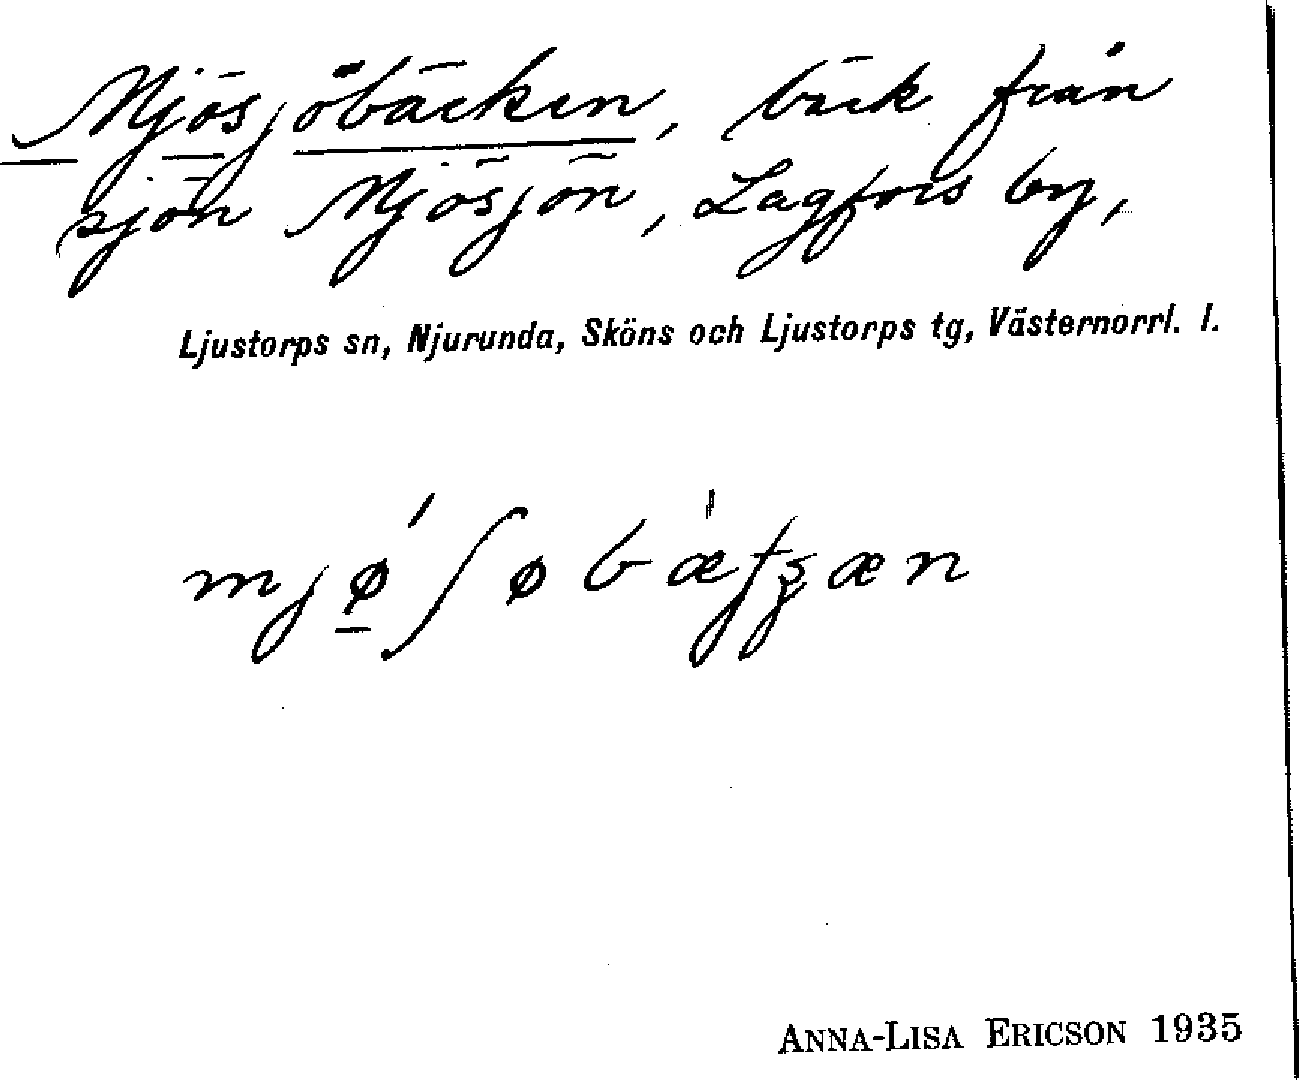 Mjösjöbäcken, bäck från
sjön Mjösjön, Lagfors by,
Ljustorps sn, Njurunda, Sköns och Ljustorps tg, Västernorrl. l.
mjøʃøbæ
ANNA-LISA ERICSON 1935